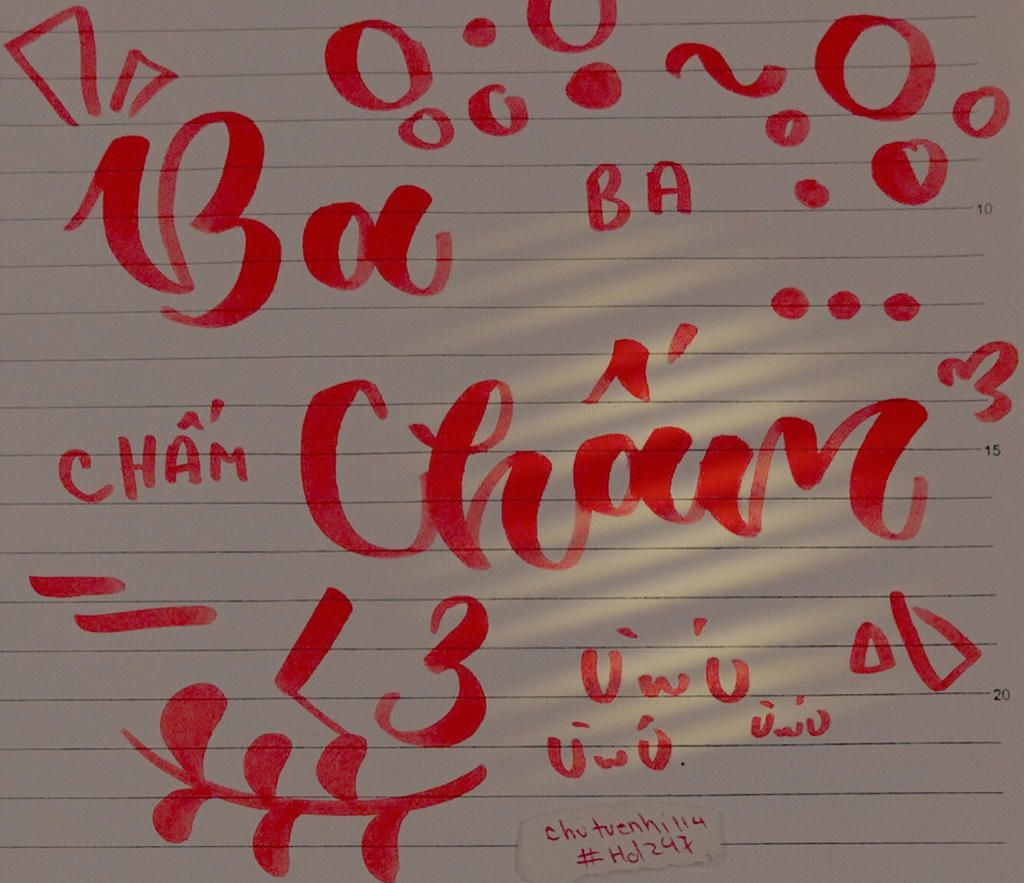 Ba
BA
10
...
Chấm
CHẤM
3
15
<3
ÙwÚ
20
ÙwÚ
ÙwÚ
#Hd297